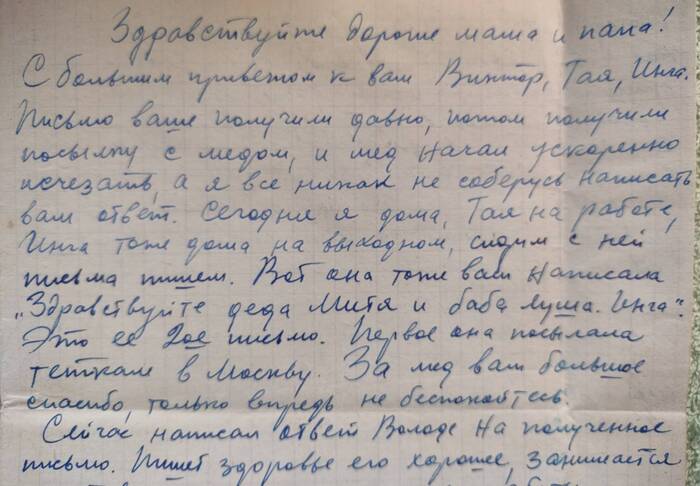 Здравствуйте дорогие мама и папа!
С большим приветом к вам Виктор, Тая, Инга.
Письмо ваше получили давно, потом получили
посылку с медом, и мед начал ускоренно
исчезать, а я все никак не соберусь написать
вам ответ. Сегодня я дома, Тая на работе,
Инга тоже дома на выходном, сидим с ней
письма пишем. Вот она тоже вам написала
„Здравствуйте деда Митя и баба Луша. Инга".
Это ее 2ое письмо. Первое она посылала
теткам в Москву. За мед вам большое
спасибо, только впредь не беспокойтесь.
Сейчас написал ответ Володе на полученное
письмо. Пишет здоровье его хорошее, занимается